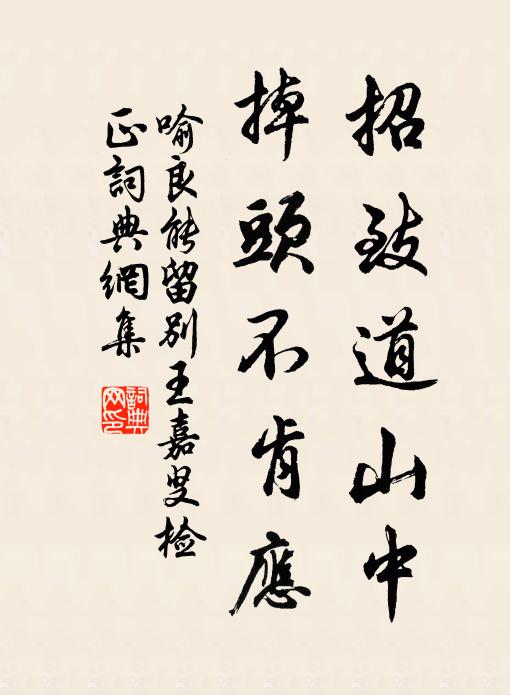 招致道山中
掉頭不肯應
喻良能留別王嘉叟檢
正詞典網集
詞典
网印